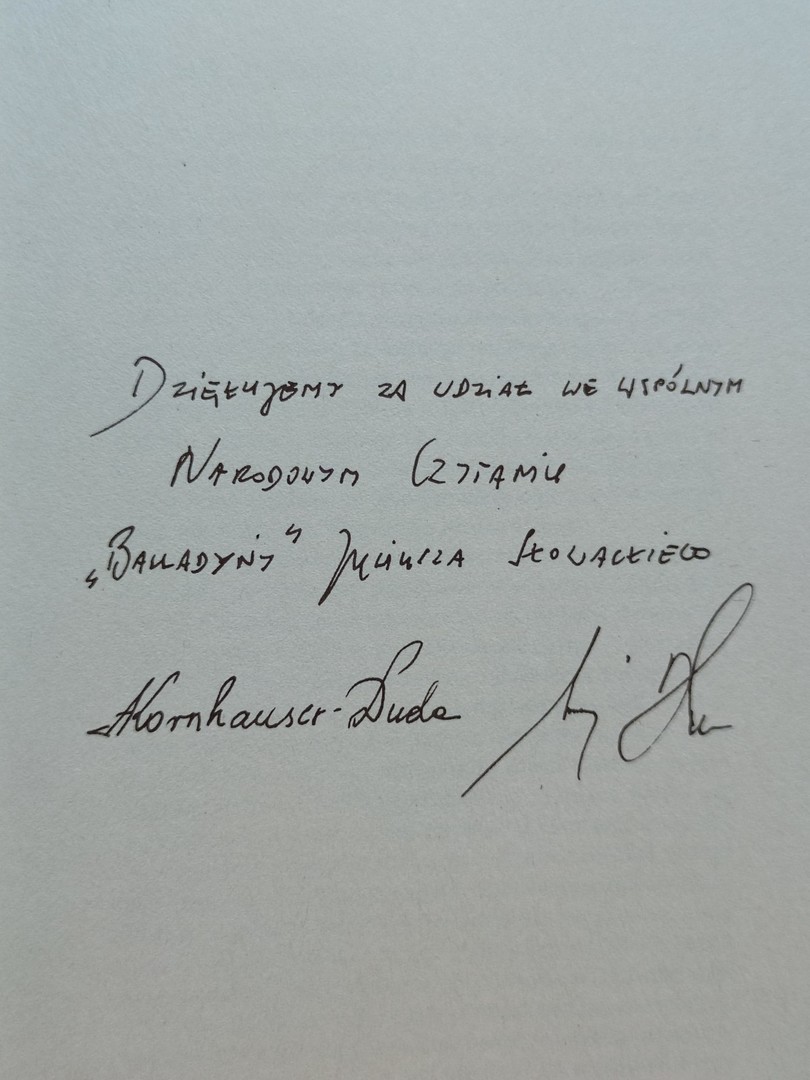 Dziękujemy za udział we wspólnym
Narodowym Czytaniu
„Balladyny” Juliusza Słowackiego
AKornhauser-Duda